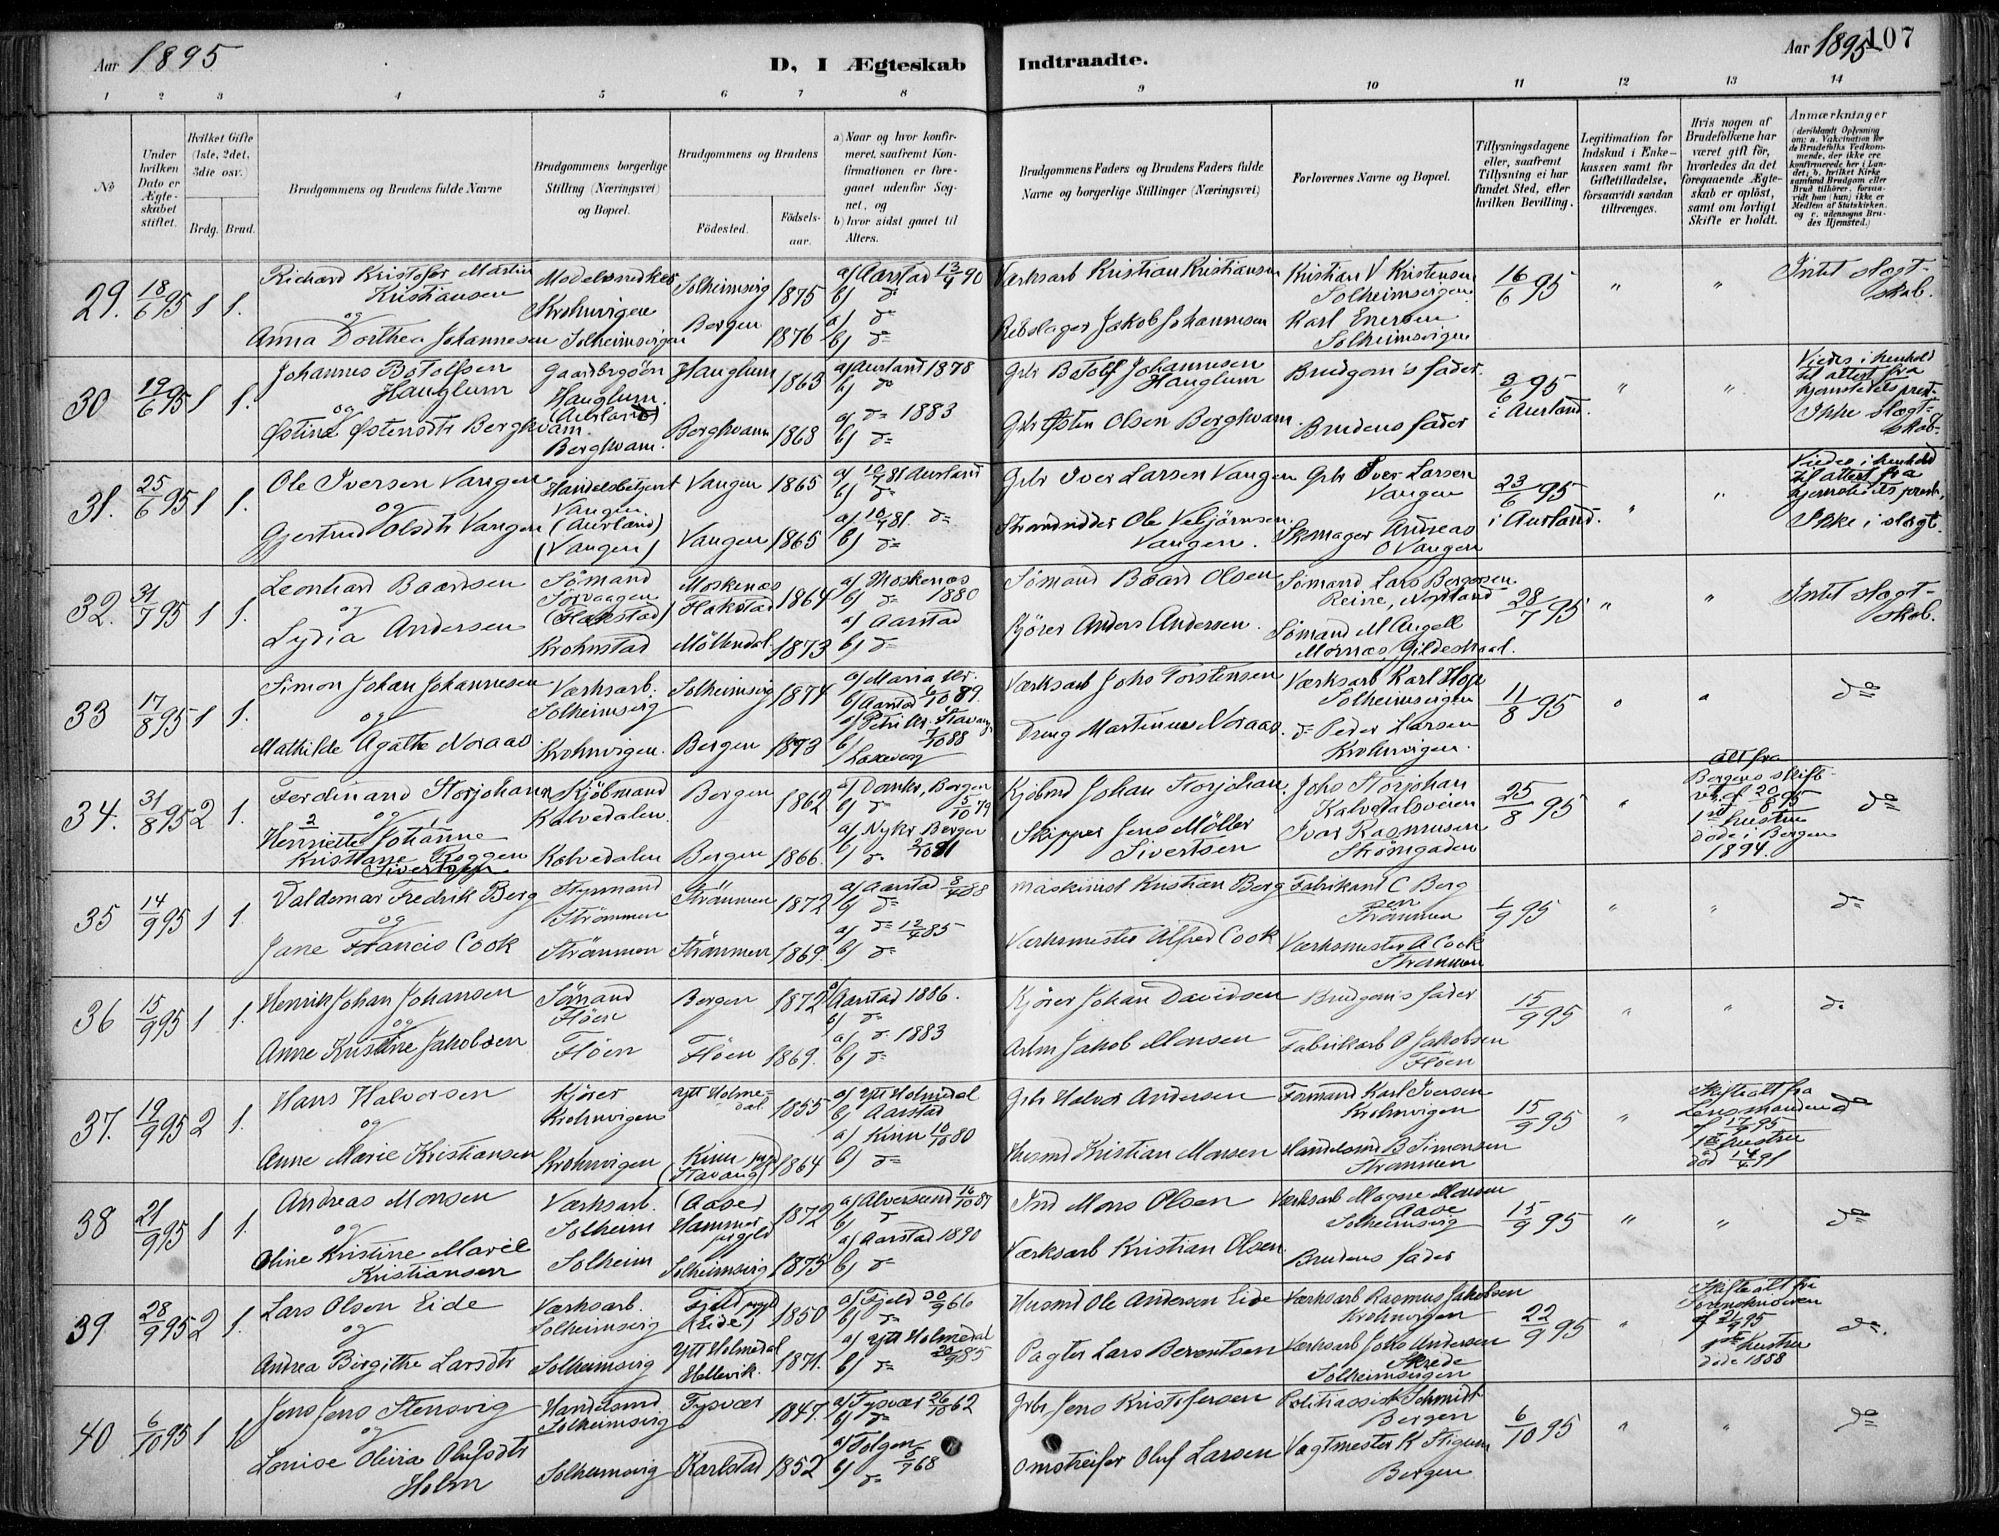 Aar 1895
D, I Ægteskab Indtraadte.
Aar 1895
107
1 2 3 4 5 6 7 8 9 10 11 12 13 14
No
Under hvilken Dato er Ægteskabet stiftet.
Hvilket Gifte (1ste, 2det, 3die osv.)
Brdg. Brud.
Brudgommens og Brudens fulde Navne
Brudgommens borgerlige Stilling (Næringsvei) og Bopæl.
Brudgommens og Brudens
Fødested.
Fødselsaar.
a) Naar og hvor konfirmeret, saafremt Konfirmationen er foregaaet udenfor Sognet, og
b) hvor sidst gaaet til Alters.
Brudgommens Faders og Brudens Faders fulde Navne og borgerlige Stillinger (Næringsvei)
Forlovernes Navne og Bopæl.
Tillysningsdagene eller, saafremt Tillysning ei har fundet Sted, efter hvilken Bevilling.
Legitimation for Indskud i Enkekassen samt for Giftetilladelse, forsaavidt saadan tiltrænges.
Hvis nogen af Brudefolkene har været gift før, hvorledes da det foregaaende Ægteskab er opløst, samt om lovligt Skifte er holdt.
Anmærkninger (deriblandt Oplysning om: a. Vakcination for de Brudefolks Vedkommende, der ikke ere konfirmerede her i Landet; b. hvilket Kirkesamfund Brudgom eller Brud tilhører, forsaavidt han (hun) ikke er Medlem af Statskirken, og c. udensogns Brudes Hjemsted.)
29. 18/6 95 1 1. Richard Kristofer Martin Kristiansen Modelsnedker Krohnvigen Solheimsvig 1875 a) Aarstad 13/4 90 b) d= Værksarb Kristian Kristiansen Kristian V Kristensen Solheimsvigen 16/6 95 " " Intet slægtskab.
og
Anna Dorthea Johannesen Solheimsvigen Bergen 1876 a) d= b) d= Rebslager Jakob Johannesen Karl Enersen Solheimsvigen
30 19/6 95 1 1. Johannes Botolfsen Hauglum Gaardbrgsøn Hauglum. (Aurland) Hauglum 1865 a) Aurland 1878 b) d= Gbr Botolf Johannesen Hauglum Brudgom's fader. 3/6 95 i Aurland. " " Viedes i henhold til attest fra hjemstedets prest. Ikke slægtskab.
og
Østine Østensdtr Bergkvam Berghvam. Berghvam 1868 a) d= 1883 b) d= Gbr Østen Olsen Berghvam Brudens fader
31. 25/6 95 1 1. Ole Iversen Vangen Handelsbetjent Vangen. (Aurland) Vangen 1865 a) 10/4 81 Aurland b) d= Gbr Iver Larsen Vangen Gbr Iver Larsen Vangen 23/6 95 i Aurland. " " Viedes i henhold til attest fra hjemstedets prest. Ikke i slægt.
og
Gjertrud Olsdtr Vangen (Vangen) Vangen 1865 a) 10/4 81. d= b) d= Strandsidder Ole Vebjørnsen Vangen. Skomager Andreas O Vangen
32. 31/7 95 1 1. Leonhard Baardsen Sømand Sørvaagen (Flakstad) Moskenæs Flakstad 1864 a) Moskenæs 1880 b) d= Sømand Baard Olsen Sømand Lars Bergersen Reine, Nordland 28/7 95 " " Intet slægtskab.
og
Lydia Andersen Krohnstad Møllendal. 1873 a) Aarstad b) d= Kjører Anders Andersen. Sømand M Angell Mornæs, Gildeskaal.
33 17/8 95 1 1. Simon Johan Johannesen Værksarb. Solheimsvig Solheimsvig 1874 a) Maria Kr. b) Aarstad 6/10 89. Værksarb Johs Torstensen Værksarb Karl Hope Solheimsvigen 11/8 95 " " do
og
Mathilde Agathe Noraas Krohnvigen. Bergen 1873 a) Petri kr. Stavang. 7/10 88 b) Laxevaag Dreng Martinus Noraas. d= Peder Larsen Krohnvigen.
34. 31/8 95 2 1. Ferdinand Storjohann Kjøbmand Kalvedalen. Bergen 1862 a) Domkr, Bergen 5/10 79 b) d= Kjøbmd Johan Storjohan Johs Storjohan Kalvedalsveien 25/8 95 " Att fra Bergens skifteret af 20/8 95 1ste hustru døde i Bergen 1894. do
og
Henriette Johanne Kristiane Roggen Sivertsen Kalvedalen Bergen 1866. a) Nykr Bergen 2/10 81 b) d= Skipper Jens Møller Sivertsen Ivar Rasmusen Strømgaden
35 14/9 95 1 1 Valdemar Fredrik Berg Styrmand Strømmen Strømmen 1872 a) Aarstad 8/4 88 b) d= Maskinist Kristian Berg Fabrikant C Berg sen Strømmen 1/9 95 " " d=
og
Jane Francis Cook Strømmen Strømmen 1869. a) d= 12/4 85 b) d= Værksmester Alfred Cook Værksmester A Cook Strømmen
36 15/9 95 1 1. Henrik Johan Johansen Sømand Fløen Bergen 1872 a) Aarstad 1886. b) d= Kjører Johan Davidsen Brudgom's fader 15/9 95 " " d.
og
Anne Kristine Jakobsen Fløen Fløen 1869. a) d= 1883 b) d= Arbm Jakob Monsen Fabrikarb O Jakobsen Fløen
37. 19/9 95 2 1. Hans Halvorsen Kjører Krohnvigen Ytt Holmedal 1855 a) Ytt Holmedal b) Aarstad Gbr Halvor Andersen Formand Karl Iversen Krohnvigen 15/9 95 " Skifteatt fra Lensmanden af 17/9 95 1ste hustru død 14/4 91 do
og
Anne Marie Kristiansen Krohnvigen Kinn pgd (Stavang) 1864 a) Kinn 10/10 80 b) d= Husmd Kristian Monsen Handelsmd B Simonsen Strømmen
38 21/9 95 1 1. Andreas Monsen Værksarb. Solheim (Aase) Hammer prgjeld 1872 a) Alversund 16/10 87 b) d= Ind Mons Olsen Værksarb Magne Monsen Aase Solheimsvig 15/9 95 " " do
og
Oline Kristine Marie Kristiansen Solheim Solheimsvig 1875 a) Aarstad 1890 b) d= Værksarb Kristian Olsen Brudens fader
39 28/9 95 2 1. Lars Olsen Eide Værksarb. Solheimsvig Fjeld pgd (Eide) 1850 a) Fjeld 30/9 66 b) d= Husmd Ole Andersen Eide Værksarb Rasmus Jakobsen Krohnvigen 22/9 95 " Skifteatt fra Sorenskriveren af 21/9 95 1ste hustru døde 1888 do.
og
Andrea Birgithe Larsdtr Solheimsvig Ytt Holmedal Hellevik. 1871. a) Ytt Holmedal 20/9 85 b) d= Pagter Lars Berentsen Værksarb Johs Andersen Skrede Solheimsvigen
40 6/10 95 1 1 Jens Jens Stensvig Handelsmd Solheimsvig Tysvær 1847 a) Tysvær 26/10 62 b) d= Gbr Jens Kristofersen Politiassist Schmidt Bergen 6/10 95 " " do
og
Louise Olivia Olufsdtr Holm Solheimsvig Karlstad 1852 a) Tolgen 5/7 68 b) d= Omstreifer Oluf Larsen Vagtmester K Stigum Bergen